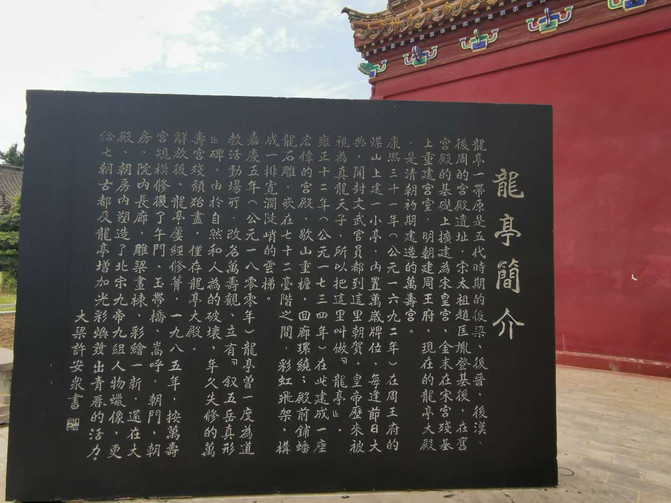 龍亭簡介
龍亭一帶原是五代時期的後梁、後晉、後漢、
後周的宮殿遺址，宋太祖趙匡胤登基後，在舊
宮殿的基礎上擴建為宋皇宮。金末在宋宮殘基
上重建宮室，明朝建周王府，現在的龍亭大殿
是清朝初期建造的萬壽宮。
康熙三十一年（公元一六九二年）在周王府的
煤山上建一小亭，內置萬歲牌位，每逢節日大
典，開封文武官員都到這里朝賀，皇帝歷來被
視為真龍天子，所以把這里叫做『龍亭』。
雍正十二年（公元一七三四年）在此建成一座
宏偉的宮殿，歇山重檐，回廊環繞；殿前鋪蟠
龍石雕，嵌在七十二臺階之間，彩虹飛架，構
成一排寬濶陡峭的雲梯。
嘉慶五年（公元一八零零年）龍亭曾一度為道
教活動場所，改名萬壽觀，立有『叙五岳真形
』碑。由於自然和人為的破壞，年久失修的萬
壽宮殘頹殆盡，僅存龍亭大殿。
解放後，龍亭屢經修葺，一九八五年，按萬壽
宮規模修復了午門、玉帶橋、嵩呼，朝門，朝
房。院內長廊，雕梁畫棟，彩繪一新，還在大
殿、朝房內塑造了北宋九帝九組人物蠟像，更
給七朝古都及龍亭增加光彩煥發出青春的活力
大梁許安衆書